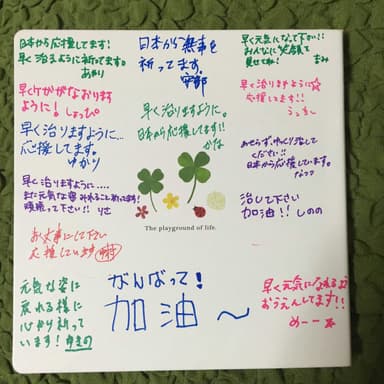 日本から応援してます!
早く治るように祈ってます。
あかり
日本から無事を
祈ってます。
早く元気になって下さい!!
みんなに笑顔を
見せてね!
まみ
早くケガがなおります
ように! しょっぴ
早く治りますように。
日本から応援してます!!
かな
早く治りますように☆
応援してます!!
早く治りますように…
応援してます。
ゆかり
あせらず、ゆっくり治して
ください!!
日本から応援しています。
早く治りますように....
また元気な姿みれること祈ってます!
頑張って下さい!! りさ
治して下さい
加油!! しのの
The playground of life.
お大事にして下さい
応援しています
元気な姿に
戻れる様に
心から祈って
います! ゆきの
がんばって!
加油〜
早く元気になれるよう
おうえんしてます!!
めーー